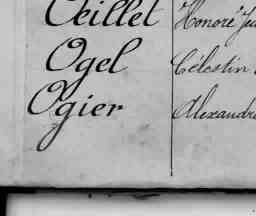 Œillet Honoré
Ogel Célestin
Ogier Alexandre